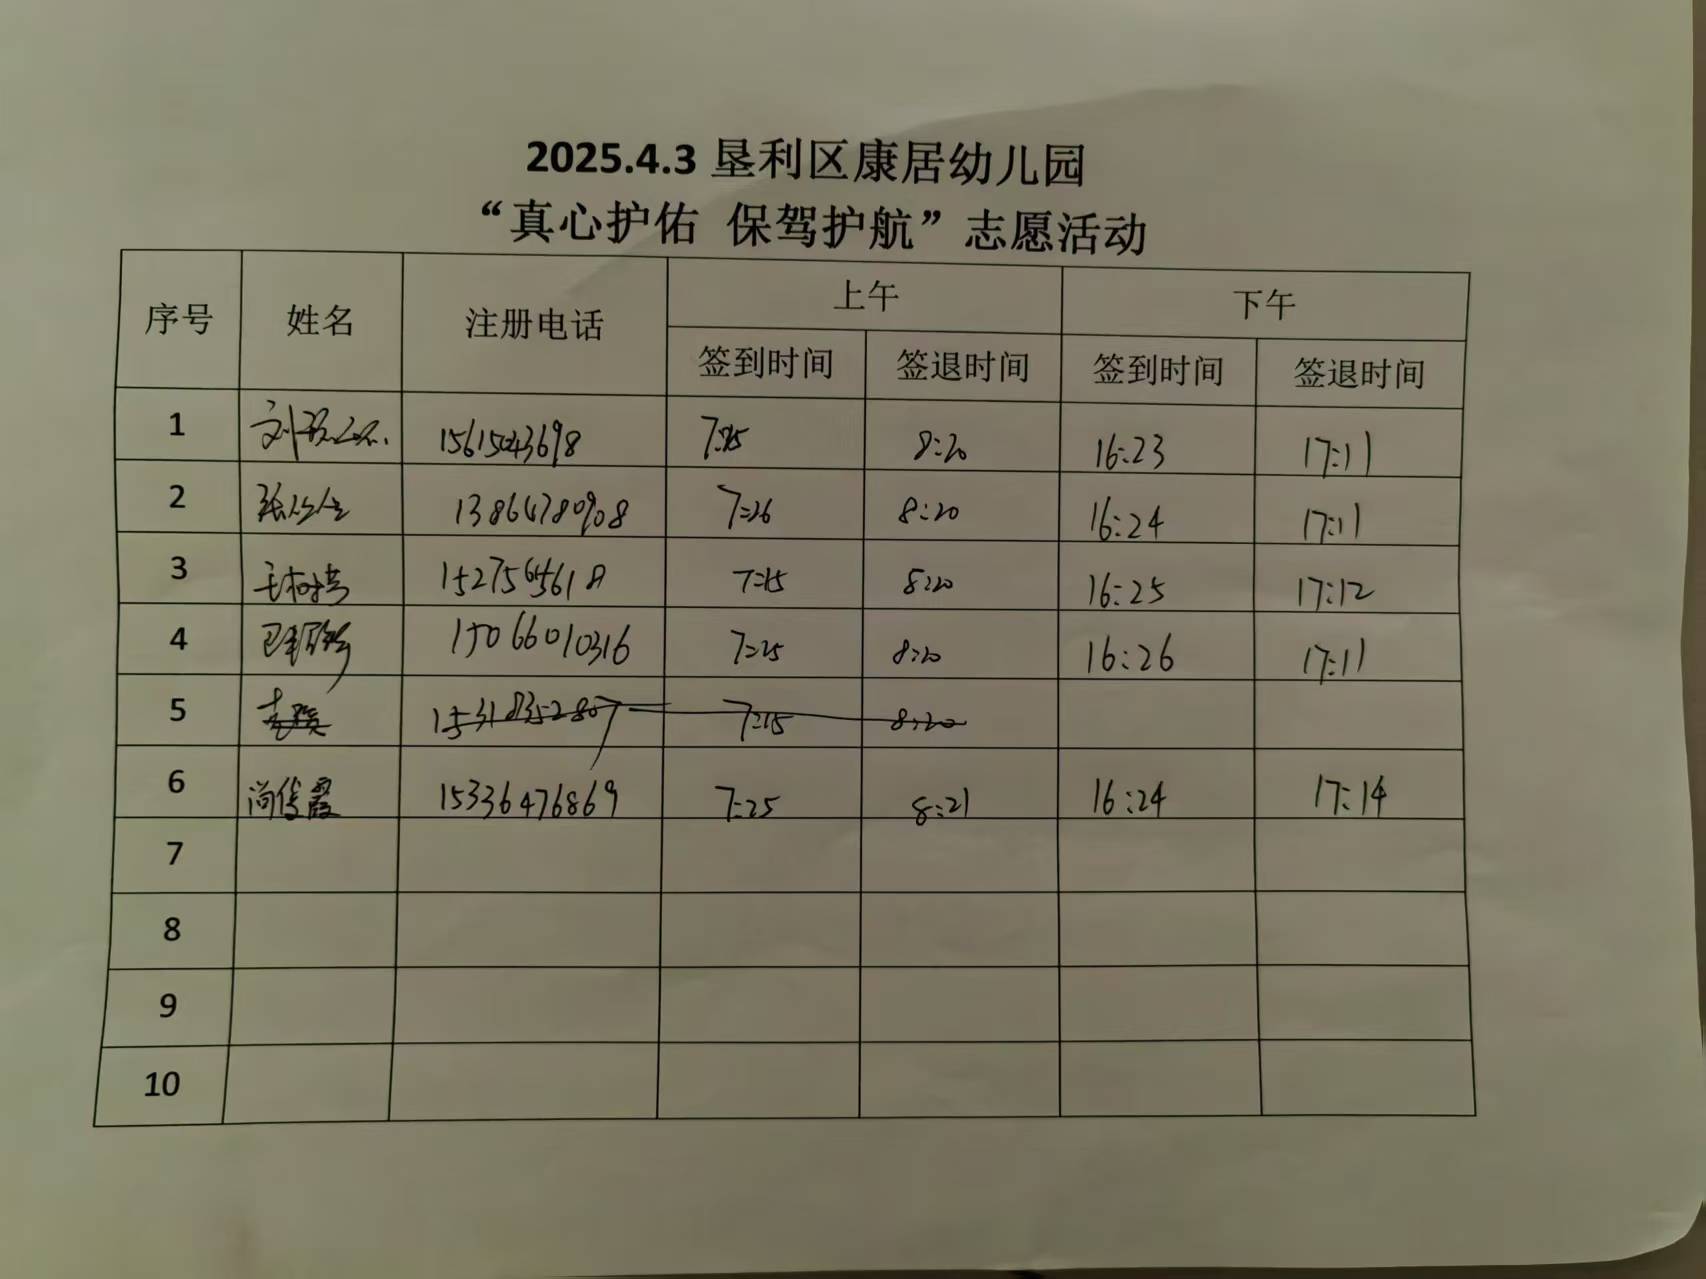 2025.4.3 垦利区康居幼儿园
“真心护佑 保驾护航”志愿活动
序号 姓名 注册电话 上午 下午
签到时间 签退时间 签到时间 签退时间
1 15615043698 8:20 16:23 17:11
2 13864780908 7:26 8:20 16:24 17:11
3 7:15 8:20 16:25 17:12
4 15066010316 7:25 8:20 16:26 17:11
5 15318352807 7:15 8:20
6 尚传霞 15336476869 7:25 8:21 16:24 17:14
7
8
9
10